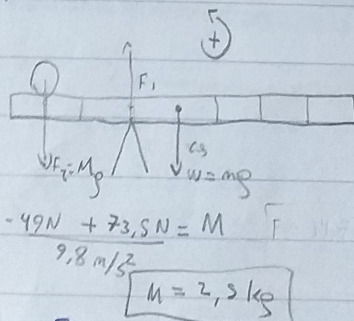 +
F₁
F₂=Mg
cg
W=mg
-49N + 73,5N = M
9,8 m/s²
M = 2,5 kg